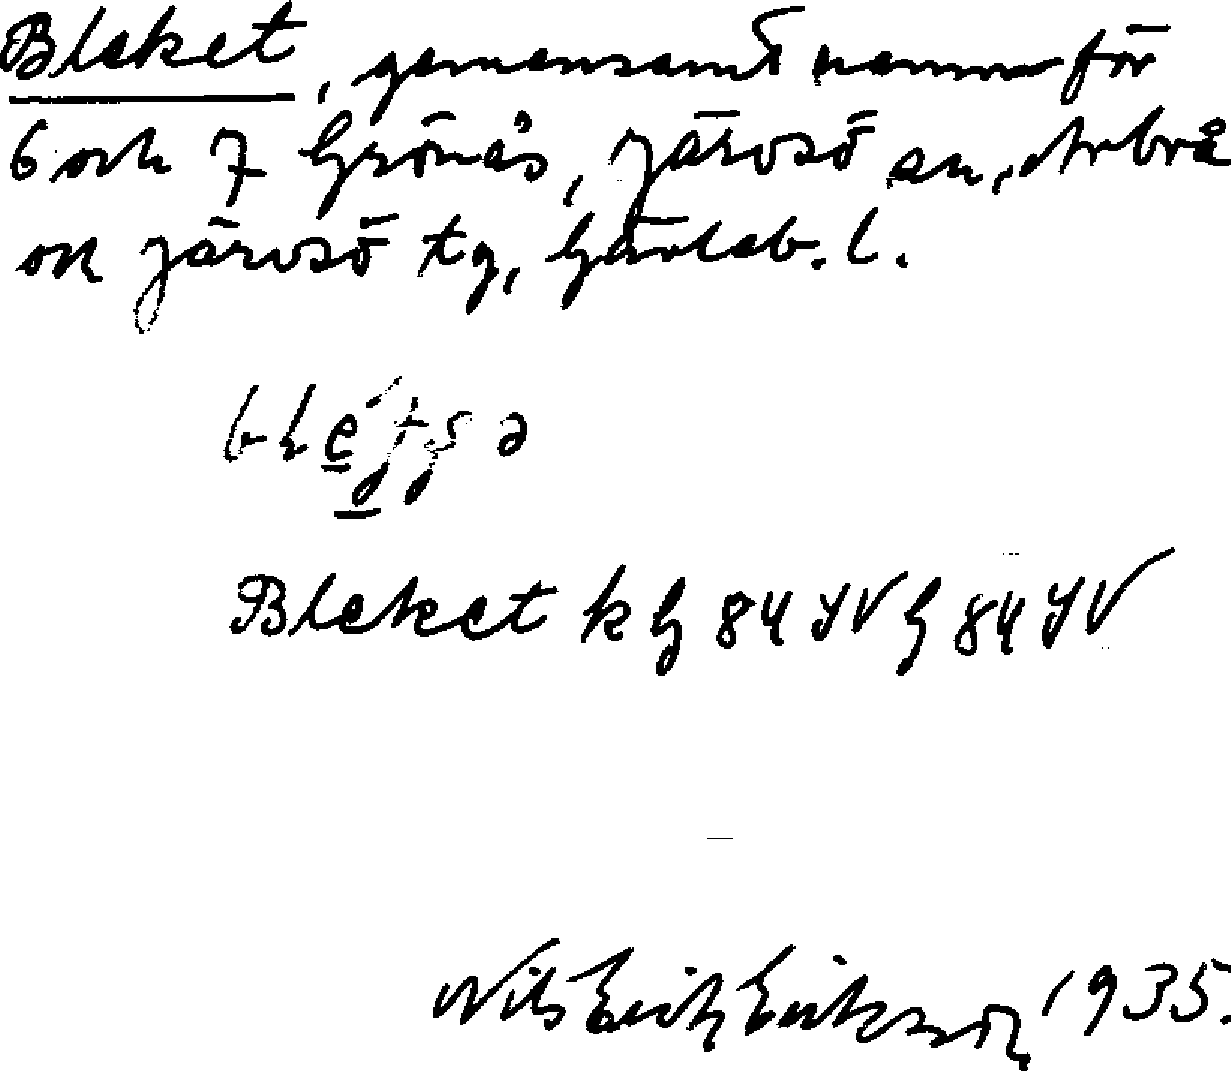 Bleket, gemensamt namn för
6 och 7 Grönås, Järvsö sn, Arbrå
ok Järvsö tg, Gävleb. l.
Bleket k G 84 SV G 84 SV
Nils Erik Eriksson, 1935.